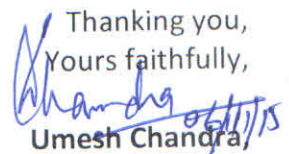 Thanking you,
Yours faithfully,
Chandra 06/11/15
Umesh Chandra,